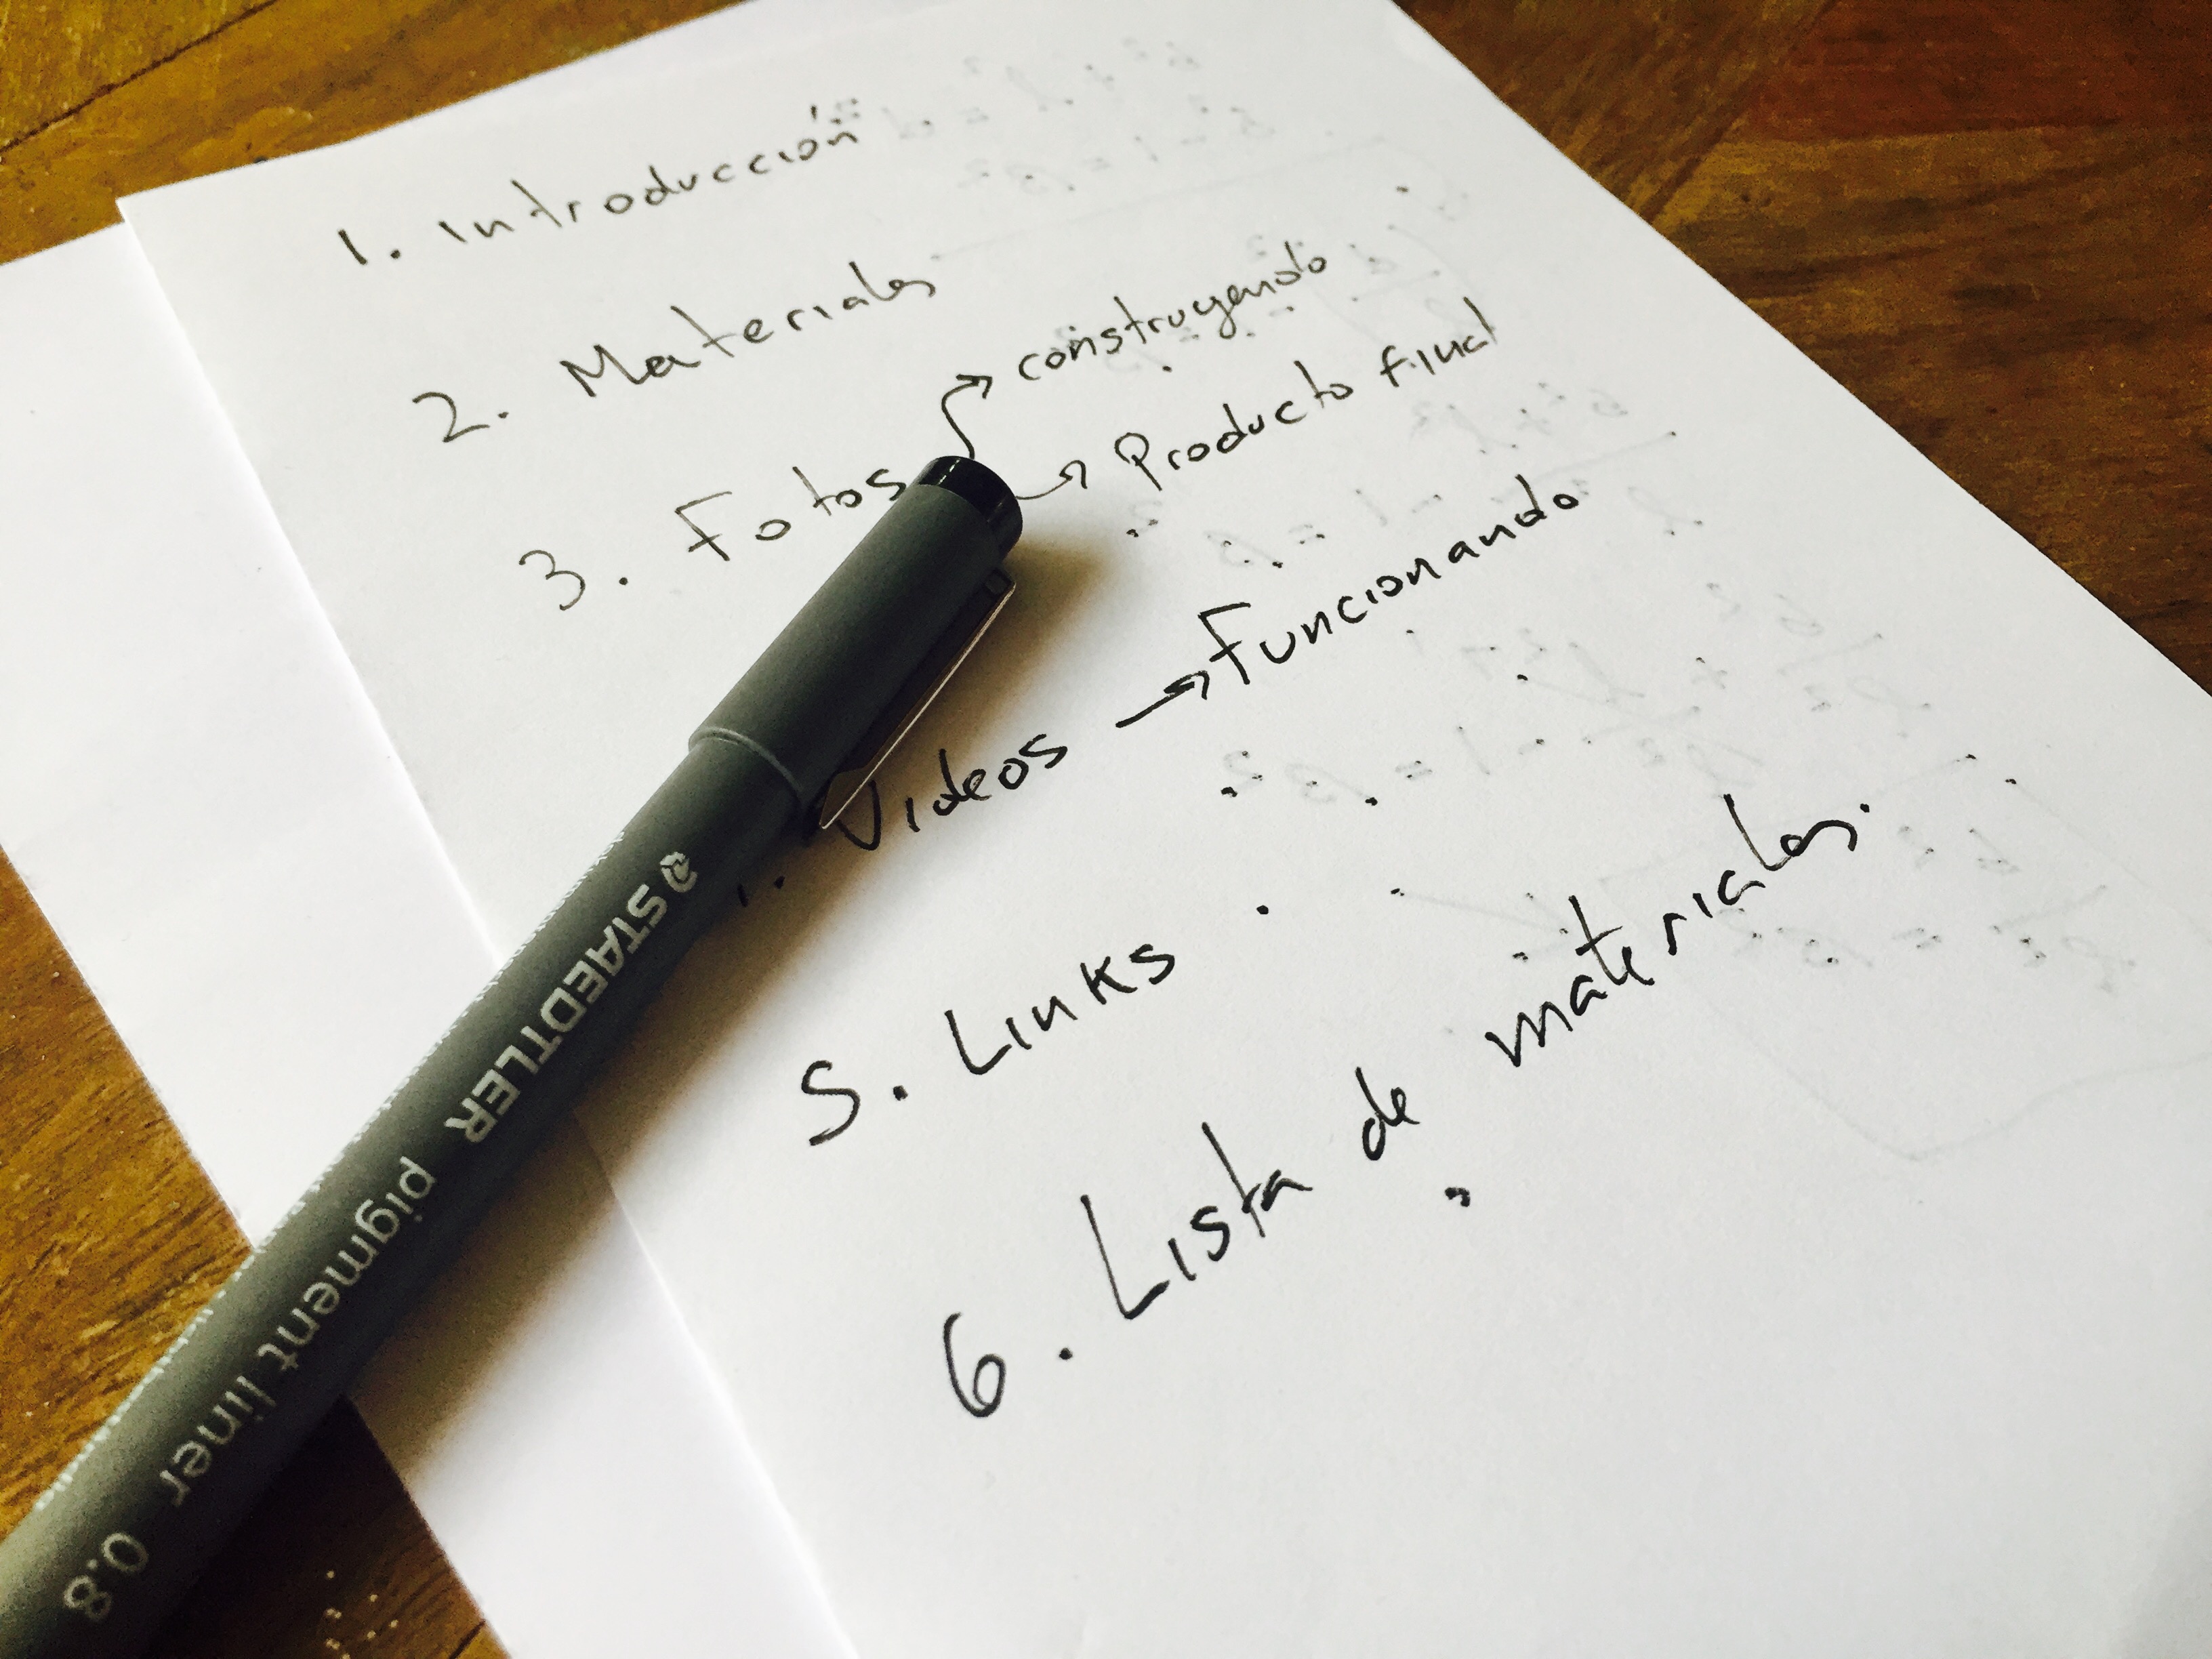 1. Introducción
2. Materiales
3. Fotos → construyendo
→ Producto final
. Videos → Funcionando
5. Links
6. Lista de materiales.
STAEDTLER pigment liner 0.8